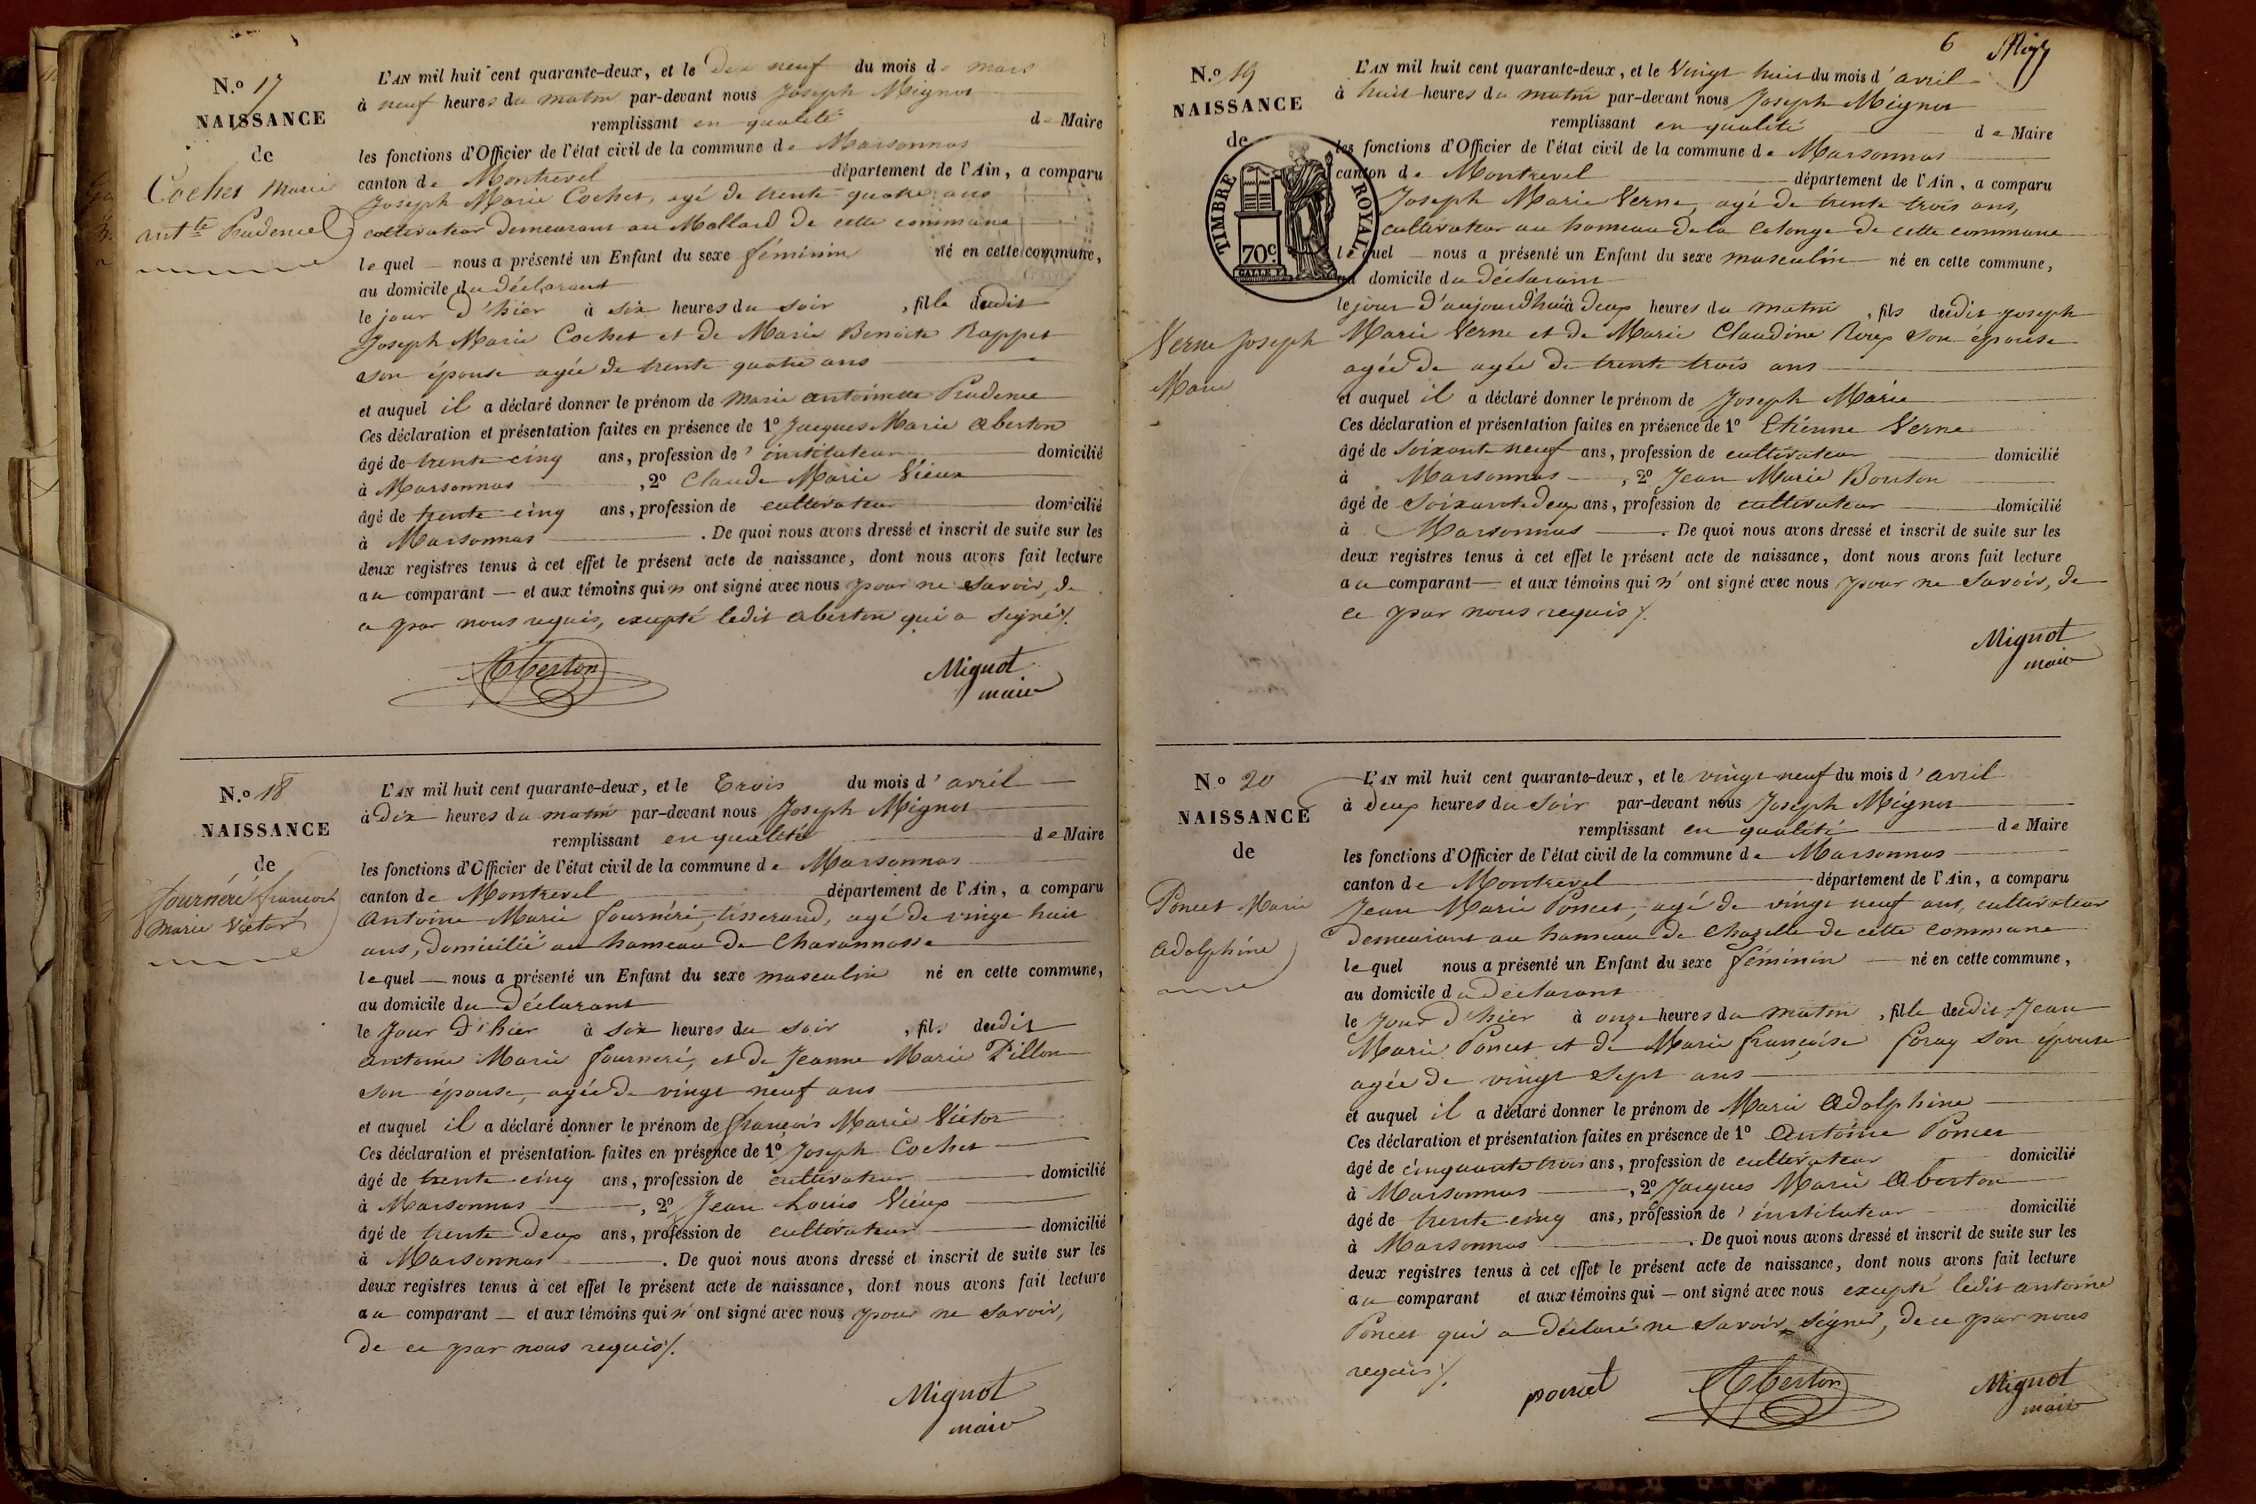 N.o 17
NAISSANCE
de
Cochet Marie
antte Prudence
L'AN mil huit cent quarante-deux, et le dix neuf du mois de mars
à neuf heures du matin par-devant nous Joseph Mignot
remplissant en qualité de Maire
les fonctions d'Officier de l'état civil de la commune de Marsonnas
canton de Montrevel département de l'Ain, a comparu
Joseph Marie Cochet, agé de trente quatre ans
cultivateur demeurant au Mollard de cette commune
lequel nous a présenté un Enfant du sexe féminin né en cette commune,
au domicile du déclarant
le jour d'hier à six heures du soir, fille dudit
Joseph Marie Cochet et de Marie Benoite Rappet
son épouse agée de trente quatre ans
et auquel il a déclaré donner le prénom de Marie antoinette Prudence
Ces déclaration et présentation faites en présence de 1o Jacques Marie Aberton
âgé de trente cinq ans, profession de' instituteur domicilié
à Marsonnas, 2o Claude Marie Vieux
âgé de trente cinq ans, profession de cultivateur domicilié
à Marsonnas. De quoi nous avons dressé et inscrit de suite sur les
deux registres tenus à cet effet le présent acte de naissance, dont nous avons fait lecture
au comparant — et aux témoins qui n'ont signé avec nous pour ne savoir, de
ce par nous requis, excepté ledit Aberton qui a signé/.
Aberton Mignot
maire
N.o 18
NAISSANCE
de
fournéré françois
Marie Victor
L'AN mil huit cent quarante-deux, et le Trois du mois d'avril
à dix heures du matin par-devant nous Joseph Mignot
remplissant en qualité de Maire
les fonctions d'Officier de l'état civil de la commune de Marsonnas
canton de Montrevel département de l'Ain, a comparu
Antoine Marie fournéré, tisserand, agé de vingt huit
ans, domicilié au hameau de Chavannosse
lequel — nous a présenté un Enfant du sexe masculin né en cette commune,
au domicile du déclarant
le jour d'hier à six heures du soir, fils dudit
antoine Marie fournéré, et de Jeanne Marie Pillon
son épouse, agée de vingt neuf ans
et auquel il a déclaré donner le prénom de françois Marie Victor
Ces déclaration et présentation faites en présence de 1o Joseph Cochet
âgé de trente cinq ans, profession de cultivateur domicilié
à Marsonnas, 2o Jean Louis Vieux
âgé de trente deux ans, profession de cultivateur domicilié
à Marsonnas. De quoi nous avons dressé et inscrit de suite sur les
deux registres tenus à cet effet le présent acte de naissance, dont nous avons fait lecture
au comparant — et aux témoins qui n'ont signé avec nous pour ne savoir,
de ce par nous requis/.
Mignot
maire
6
N.o 19
NAISSANCE
de
TIMBRE ROYAL
70c
Verne Joseph
Marie
L'AN mil huit cent quarante-deux, et le Vingt huit du mois d'avril
à huit heures du matin par-devant nous Joseph Mignot
remplissant en qualité de Maire
les fonctions d'Officier de l'état civil de la commune de Marsonnas
canton de Montrevel département de l'Ain, a comparu
Joseph Marie Verne, agé de trente trois ans,
cultivateur au hameau de la Colonge de cette commune
lequel — nous a présenté un Enfant du sexe masculin né en cette commune,
au domicile du déclarant
le jour d'aujourd'hui à deux heures du matin, fils dudit joseph
Marie Verne et de Marie Claudine Roux son épouse
agée de agée de trente trois ans
et auquel il a déclaré donner le prénom de Joseph Marie
Ces déclaration et présentation faites en présence de 1o Etienne Verne
âgé de soixante neuf ans, profession de cultivateur domicilié
à Marsonnas, 2o Jean Marie Bouton
âgé de soixante deux ans, profession de cultivateur domicilié
à Marsonnas. De quoi nous avons dressé et inscrit de suite sur les
deux registres tenus à cet effet le présent acte de naissance, dont nous avons fait lecture
au comparant — et aux témoins qui n'ont signé avec nous pour ne savoir, de
ce par nous requis/.
Mignot
maire
N.o 20
NAISSANCE
de
Poncet Marie
adolphine
L'AN mil huit cent quarante-deux, et le vingt neuf du mois d'avril
à deux heures du soir par-devant nous Joseph Mignot
remplissant en qualité de Maire
les fonctions d'Officier de l'état civil de la commune de Marsonnas
canton de Montrevel département de l'Ain, a comparu
Jean Marie Poncet, agé de vingt neuf ans, cultivateur
demeurant au hameau de Chazelle de cette commune
lequel nous a présenté un Enfant du sexe féminin né en cette commune,
au domicile du déclarant
le jour d'hier à onze heures du matin, fille dudit Jean
Marie Poncet et de Marie françoise foray son épouse
agée de vingt sept ans
et auquel il a déclaré donner le prénom de Marie Adolphine
Ces déclaration et présentation faites en présence de 1o Antoine Poncet
âgé de cinquante trois ans, profession de cultivateur domicilié
à Marsonnas, 2o Jacques Marie Aberton
âgé de trente cinq ans, profession de' instituteur domicilié
à Marsonnas. De quoi nous avons dressé et inscrit de suite sur les
deux registres tenus à cet effet le présent acte de naissance, dont nous avons fait lecture
au comparant et aux témoins qui — ont signé avec nous excepté ledit antoine
Poncet qui a déclaré ne savoir signer, de ce par nous
requis/.
poncet Aberton Mignot
maire